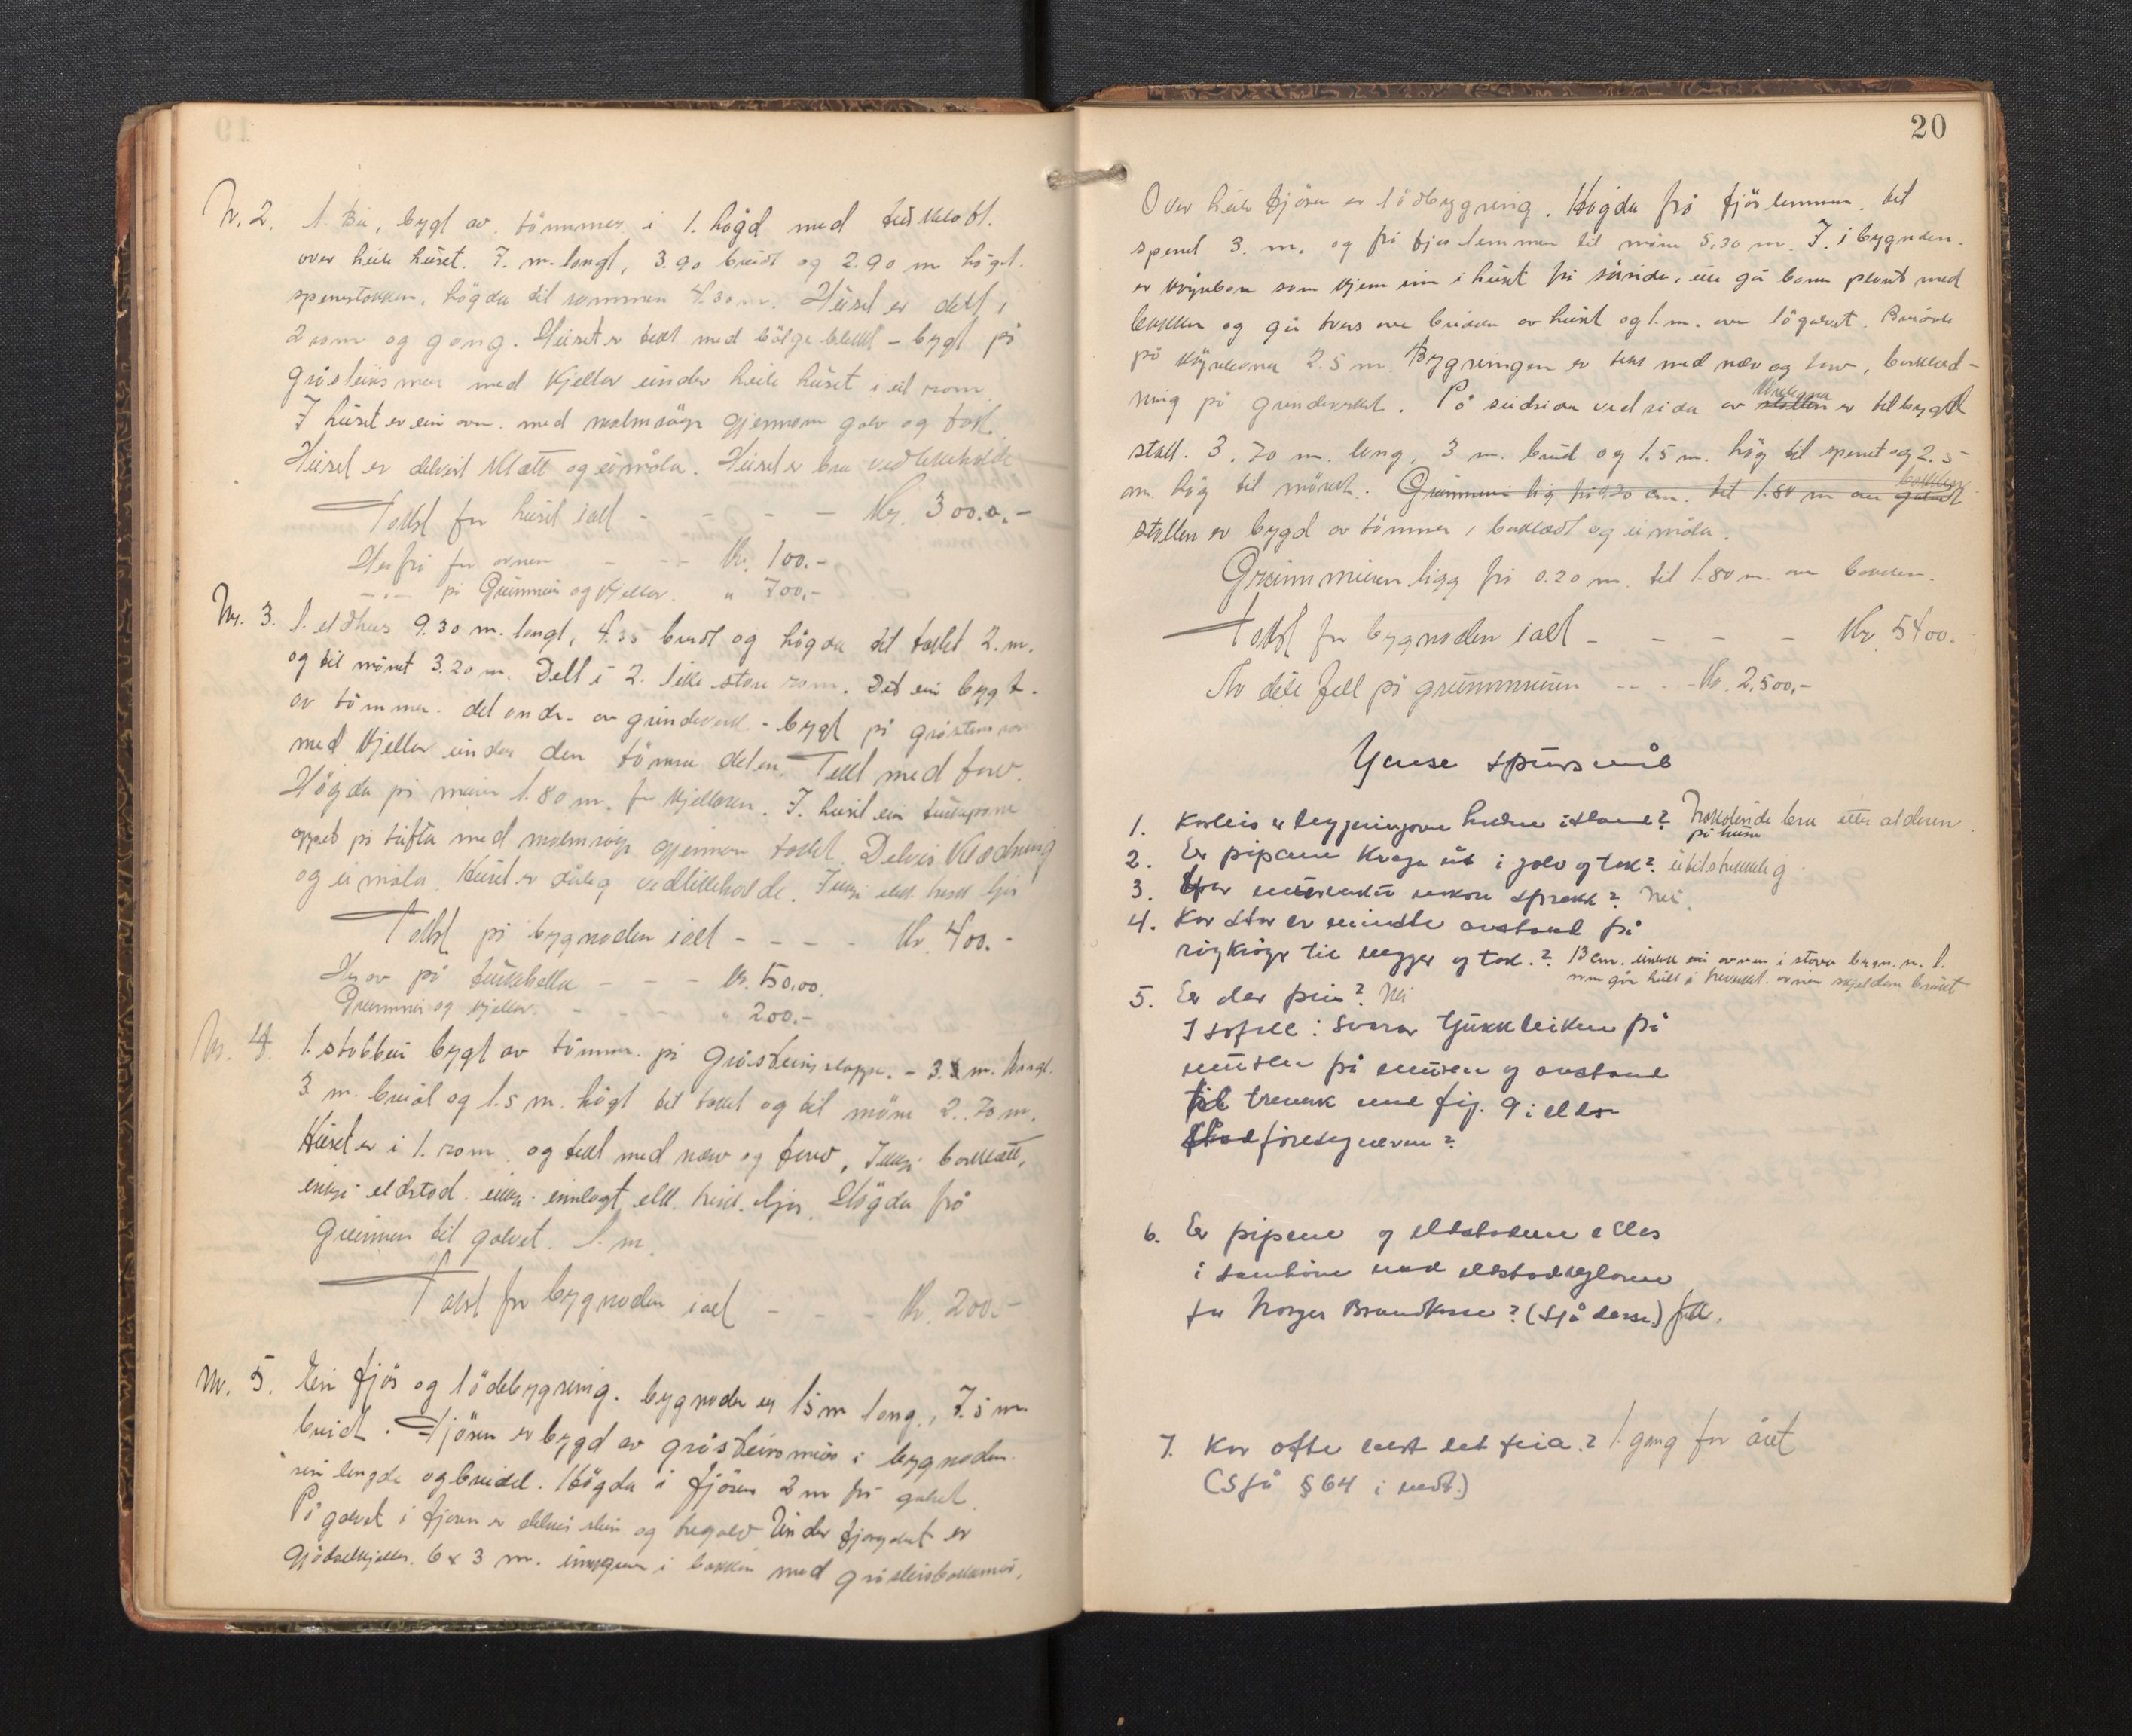 Nr. 2. 1. Bu, bygt av tömmer i 1. högd med
over heile huset. 7. m. langt, 3.90 breidt og 2.90 m högt.
spenstokken, högda til rommen 4.30 m. Huset er delt i
2 rom og gang. Huset er tekt med bölgeblekk - bygt på
gråsteins mur med Kjellar under heile huset i eit rom.
I huset er ein omn. med malmrör gjennom golv og tak.
Huset er delvist klædt og umåla. Huset er bra vedlikeholde
Takst for huset ialt - - - - Kr. 300.0.-
Herfrå for ovnen - - - Kr. 100.-
-"- på Grunnmur og Kjellar. " 700.-
Nr. 3. 1. eldhus 9.30 m. langt, 4.35 breidt og högda til taket 2. m.
og til mönet 3.20 m. Delt i 2. like store rom. Det ein bygt
av tömmer. det andre av grindverk - bygt på gråsteinsmur
med Kjellar under den tömra delen. Tekt med torv.
Högda på muren 1.80 m. for Kjellaren. I. huset ein
oppsett på tufta med malmrör gjennom taket. Delvis Klædning
og umåla. Huset er dårleg vedlikeholde. Ikkje elek. kraft ljos
Takst på bygnaden ialt - - - - Kr. 400.-
Herav på - - - Kr. 50.00.
Grunnmur og Kjellar. - - - " 200.-
Nr. 4. 1. stabbur bygt av tömmer. på gråsteins - 3.5 m. langt.
3 m. breidt og 1.5 m. högt til taket og til möne 2.70 m.
Huset er i 1. rom. og tekt med næver og torv. Ikkje bordklædt,
inkje eldstad. inkje innlagt elek. kraft. ljos. Högda frå
Grunnen til golvet. 1. m.
Takst for bygnaden ialt - - - Kr. 200.-
Nr. 5. Ein fjös og lödebygning. bygnaden er 15 m lang., 7.5 m
breidt. Fjösen er bygd av gråsteinsmur i bygnaden
sin lengde og breidd. Högda i fjösen 2 m frå golvet.
På golvet i fjösen er delvis stein og tregolv. Under fjösgolvet er
gjödselkjeller. 6 x 3 m. inngrave i bakken med gråsteinsbakkmur.
20
Over heile fjösen er lödbygning. Högda frå fjöslemmen til
spenet 3. m. og frå fjöslemmen til möne 5.30 m. I. i bygnaden
er köyrebru som kjem inn i huset frå sørsida, ute går brua plant med
bakken og går tvers over breidda av huset og 1. m. over lögolvet. Breidda
på köyrebrua 2.5 m. Bygningen er tekt med næv og torv, bordklæd-
ning på grindverket. På sudsida ved sida av stallen er tilbygd
stall. 3.70 m. lang, 3 m. breid og 1.5 m. hög til spenet og 2.5
m. hög til mönet. Grunnmur lig frå 0.20 cm. til 1.80 m over golvet bakken
stallen er bygd av tömmer, bordklædt og umåla.
Grunnmuren ligg frå 0.20 m. til 1.80 m. over bakken.
Takst for bygnaden ialt - - - - Kr. 5400.
Av dette fell på grunnmuren - - - Kr. 2.500,-
Ymse spursmål
1. Korleis er bygningane haldne istand? Haldande bra etter alderen
på husa
2. Er pipene kraga ut i golv og tak? utilstrekkeleg
3. Har murverket nokon sprekk? Nei.
4. Kor stor er minste avstand frå
röykrör til vegger og tak.? 13 cm. unntak ein ovnen i stova bygn. n. 1.
som går heilt i treverket. ovnen sjeldan brukt
5. Er der peis? Nei
I sofall: Svarar tjukkleiken på
muren på muren og avstand
til treverk med fig. 9 i eld-
föresegnene?
6. Er pipene og eldstadene elles
i samhöve med eldstadreglane
for Norges Brandkasse? (Sjå desse)
7. Kor ofte vert det feia? 1. gang for året
(Sjå § 64 i vedt.)